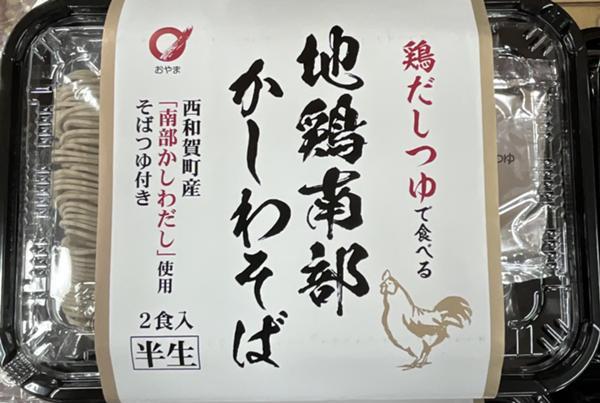 鶏だしつゆで食べる
地鶏南部
かしわそば
西和賀町産
「南部かしわだし」使用
そばつゆ付き
2食入
半生
おやま
つゆ